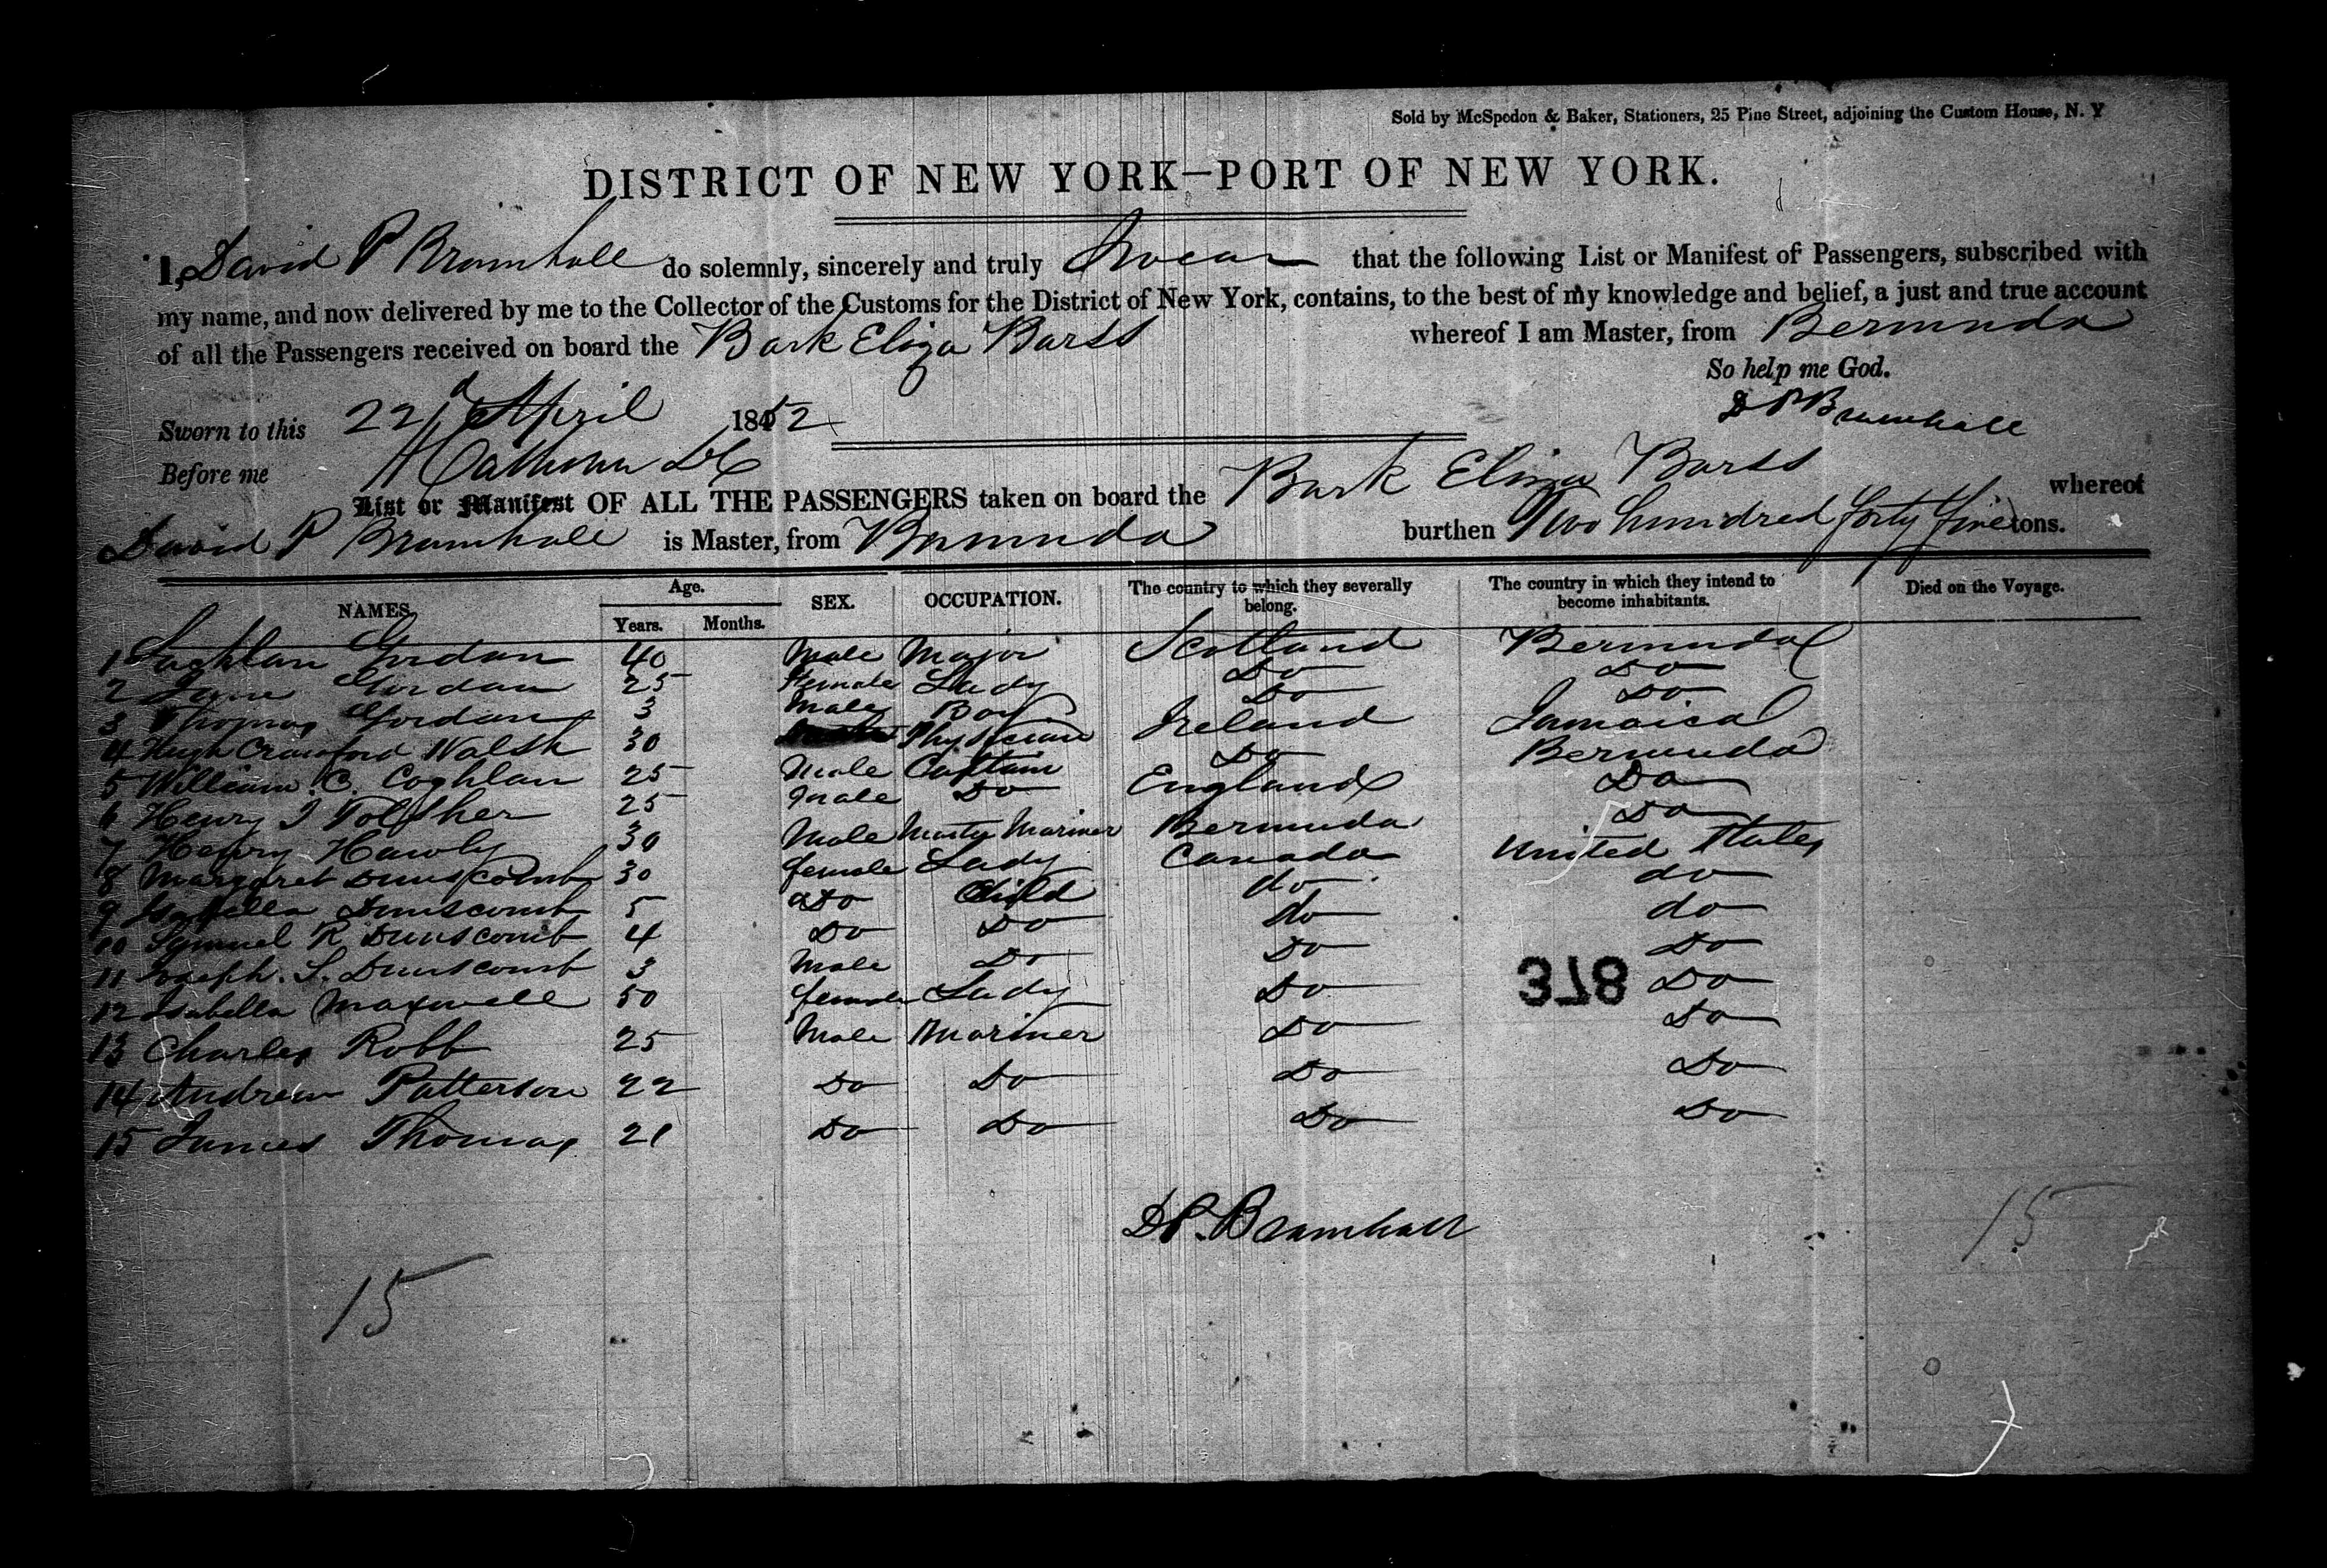 Sold by McSpedon & Baker, Stationers, 25 Pine Street, adjoining the Custom House, N. Y
DISTRICT OF NEW YORK—PORT OF NEW YORK.
I, David P Bramhall do solemnly, sincerely and truly Swear that the following List or Manifest of Passengers, subscribed with
my name, and now delivered by me to the Collector of the Customs for the District of New York, contains, to the best of my knowledge and belief, a just and true account
of all the Passengers received on board the Bark Eliza Barss whereof I am Master, from Bermuda
So help me God.
Sworn to this 22d April 1852 D P Bramhall
Before me
List or Manifest OF ALL THE PASSENGERS taken on board the Bark Eliza Barss whereof
David P Bramhall is Master, from Bermuda burthen Two hundred forty five tons.
NAMES. Age. Years. Months. SEX. OCCUPATION. The country to which they severally belong. The country in which they intend to become inhabitants. Died on the Voyage.
1 Lachlan Gordon 40 Male Major Scotland Bermuda
2 Jane Gordon 25 Female Lady Do Do
3 Thomas Gordon 3 Male Boy Do Do
4 Hugh Crawford Walsh 30 Physician Ireland Jamaica
5 William C. Coghlan 25 Male Captain Do Bermuda
6 Henry 25 Male Do England Do
7 Henry Hawly 30 Male Mariner Bermuda Do
8 Margaret Dunscomb 30 female Lady Canada United States
9 Isabella Dunscomb 5 Do Child do do
10 Samuel R Dunscomb 4 Do Do do do
11 Joseph. S. Dunscomb 3 Male Do Do Do
12 Isabella Maxwell 50 female Lady Do Do
13 Charles Robb 25 Male Mariner Do Do
14 Andrew Patterson 22 Do Do Do Do
15 James Thomas 21 Do Do Do Do
378
D P. Bramhall
15
15